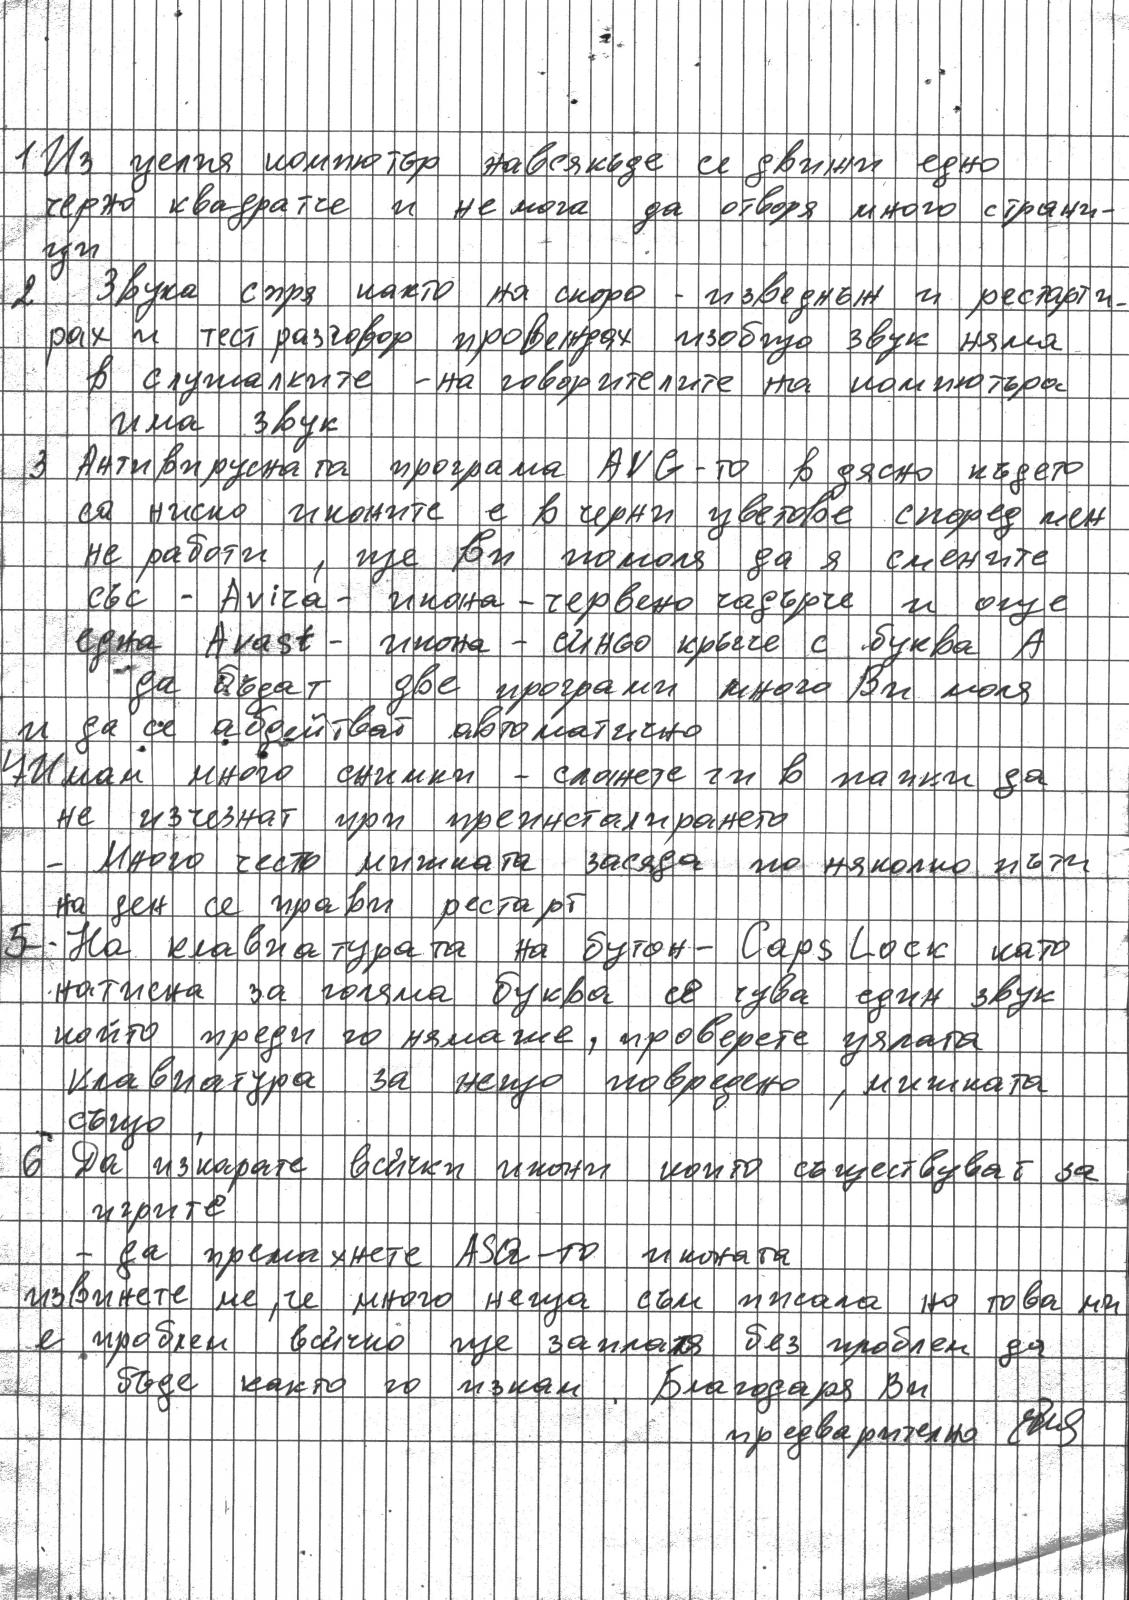 1 Из целия компютър навсякъде се движи едно
черно квадратче и не мога да отворя много страни-
ци
2 Звука спря както на скоро - изведнъж и рестарти-
рах и тест разговор провеждах изобщо звук няма
в слушалките - на говорителите на компютъра
има звук
3 Антивирусната програма AVG-то в дясно където
са ниско иконите е в черни цветове според мен
не работи, ще Ви помоля да я смените
със - Avira - икона - червено чадърче и още
една Avast - икона - синьо кръгче с буква А
да бъдат две програми много Ви моля
и да се абдейтват автоматично
4 Имам много снимки - сложете ги в папки да
не изчезнат при преинсталирането
- Много често мишката засяда по няколко пъти
на ден се прави рестарт
5 - На клавиатурата на бутон - Caps Lock като
натисна за голяма буква се чува един звук
който преди го нямаше, проверете цялата
клавиатура за нещо повредено, мишката
също,
6 Да изкарате всички икони които съществуват за
игрите
- да премахнете ASQ-то иконата
извинете ме, че много неща съм писала но това ми
е проблем всичко ще заплатя без проблем да
бъде както го искам. Благодаря Ви
предварително